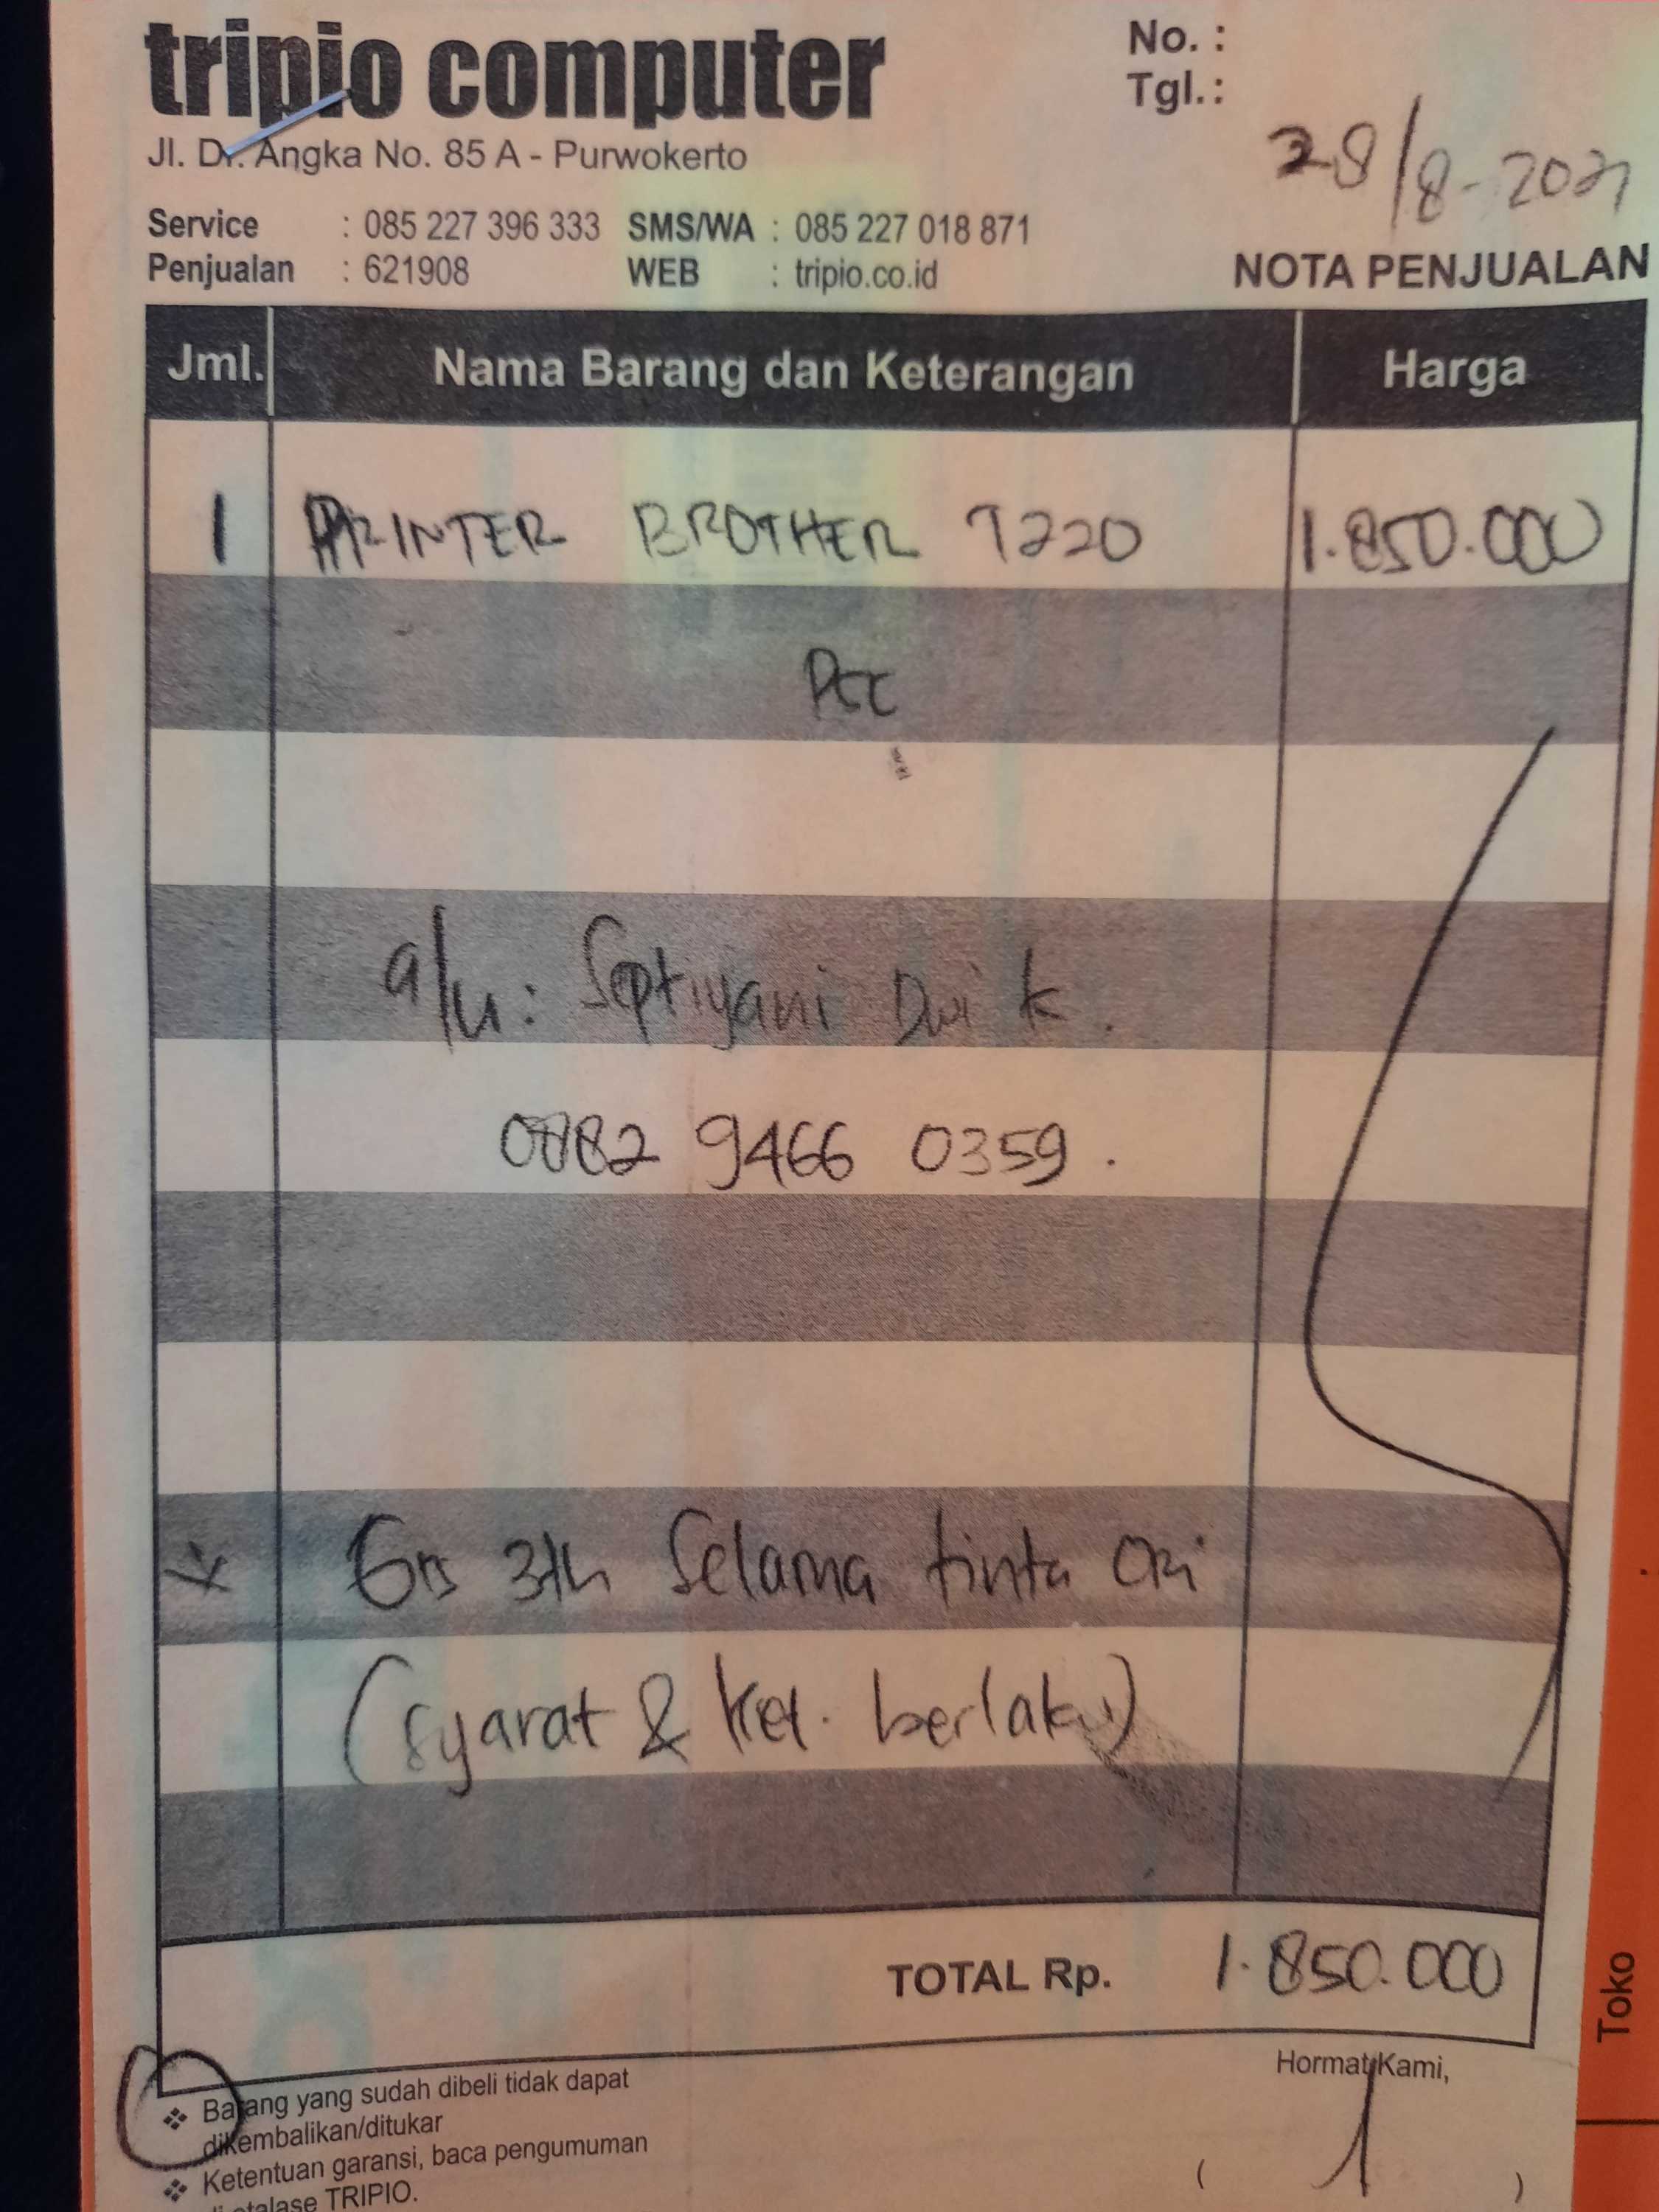 tripio computer
Jl. Dr. Angka No. 85 A - Purwokerto
Service : 085 227 396 333 SMS/WA : 085 227 018 871
Penjualan : 621908 WEB : tripio.co.id
No. :
Tgl. :
28/8-2021
NOTA PENJUALAN
Jml. Nama Barang dan Keterangan Harga
1 PRINTER BROTHER T220 1.850.000
a/n : Septiyani Dwi K.
0882 9466 0359.
Grs 3th Selama tinta Ori
(syarat & ket. berlaku)
TOTAL Rp. 1.850.000
❖ Barang yang sudah dibeli tidak dapat
dikembalikan/ditukar
❖ Ketentuan garansi, baca pengumuman
di etalase TRIPIO.
Hormat Kami,
( )
Toko